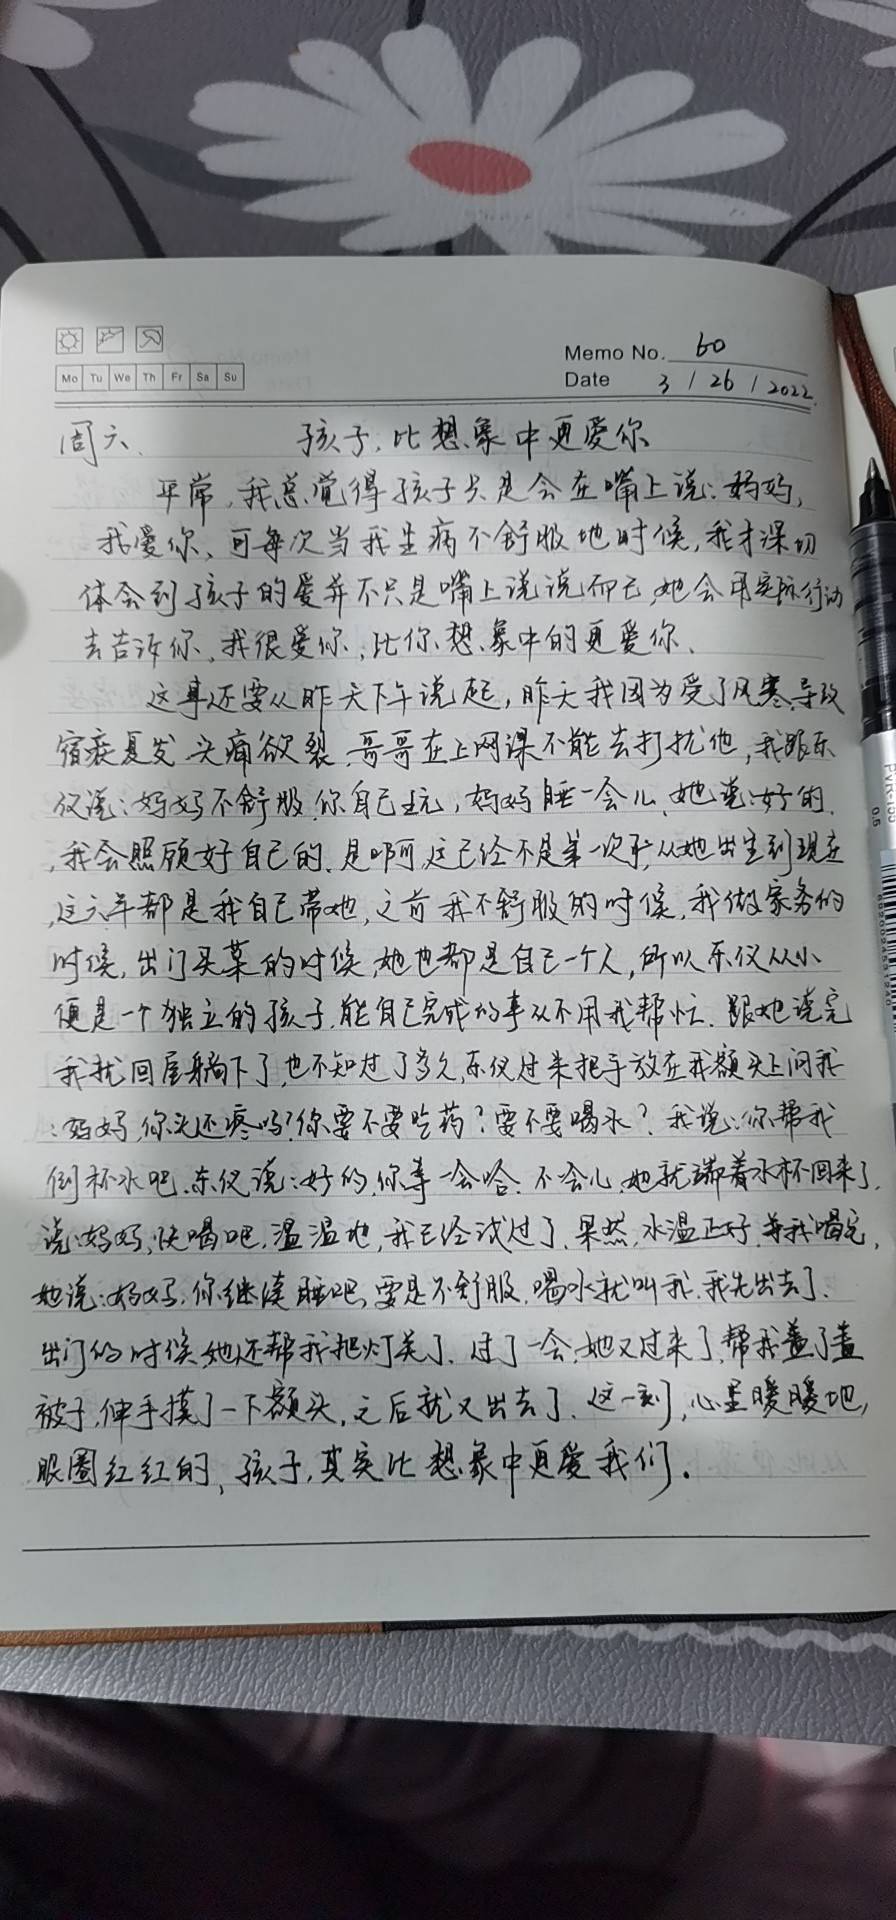 Memo No. 60
Mo Tu We Th Fr Sa Su
Date 3 / 26 / 2022.
周六、 孩子,比想象中更爱你
平常,我总觉得孩子只是会在嘴上说:妈妈,
我爱你、可每次当我生病不舒服地时候,我才深切
体会到孩子的爱并不只是嘴上说说而已,她会用实际行动
去告诉你,我很爱你,比你想象中的更爱你、
这事还要从昨天下午说起,昨天我因为受了风寒导致
宿疾复发,头痛欲裂,哥哥在上网课不能去打扰他,我跟东
仪说:妈妈不舒服,你自己玩,妈妈睡一会儿,她说:好的,
,我会照顾好自己的、是啊,这已经不是第一次了,从她出生到现在
,这六年都是我自己带她,之前我不舒服的时候,我做家务的
时候,出门买菜的时候,她也都是自己一个人,所以东仪从小
便是一个独立的孩子,能自己完成的事从不用我帮忙、跟她说完
我就回屋躺下了,也不知过了多久,东仪过来把手放在我额头上问我
:妈妈,你头还疼吗?你要不要吃药?要不要喝水?我说:你帮我
倒杯水吧、东仪说:好的,你等一会哈、不会儿,她就端着水杯回来了,
说:妈妈,快喝吧,温温地,我已经试过了、果然,水温正好,等我喝完,
她说:妈妈,你继续睡吧,要是不舒服,喝水就叫我,我先出去了、
出门的时候,她还帮我把灯关了、过了一会,她又过来了,帮我盖了盖
被子,伸手摸了一下额头,之后就又出去了、这一刻,心里暖暖地,
眼圈红红的,孩子,其实比想象中更爱我们.
PVR-155
0.5